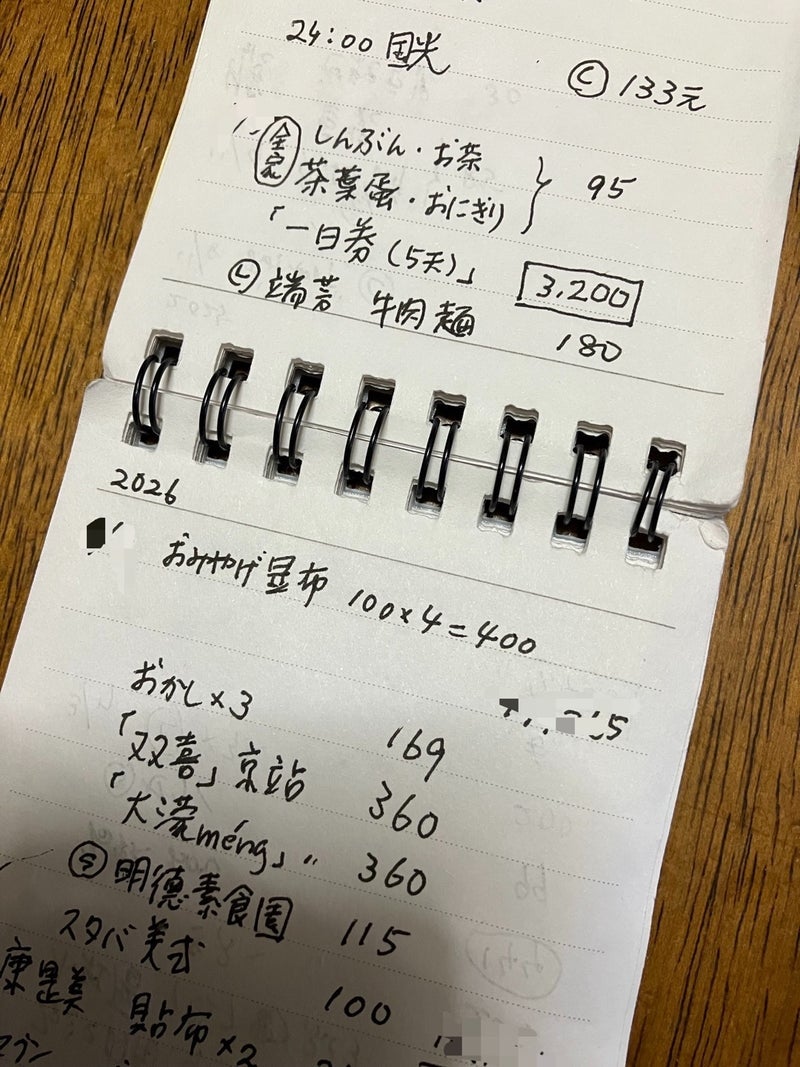 24:00 国光 Ⓒ 133元
全家 しんぶん・お茶
茶葉蛋・おにぎり } 95
「一日券(5天)」 3,200
Ⓛ 端芳 牛肉麺 180
2026
おみやげ昆布 100×4=400
おかし×3 169
「双喜」京站 360
「大濛méng」〃 360
明德素食園 115
スタバ美式 100
康是美 貼布×2